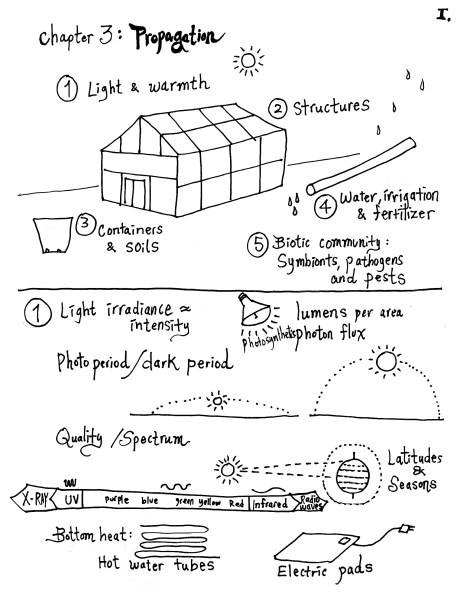 I.
Chapter 3: Propagation
① Light & warmth
② Structures
③ Containers
& soils
④ Water, irrigation
& fertilizer
⑤ Biotic community:
Symbionts, pathogens
and pests
① Light irradiance ≈
intensity
lumens per area
photosynthetic photon flux
Photo period/dark period
Quality/Spectrum
Latitudes
&
Seasons
X-RAY UV purple blue green yellow Red Infrared Radio waves
Bottom heat:
Hot water tubes
Electric pads